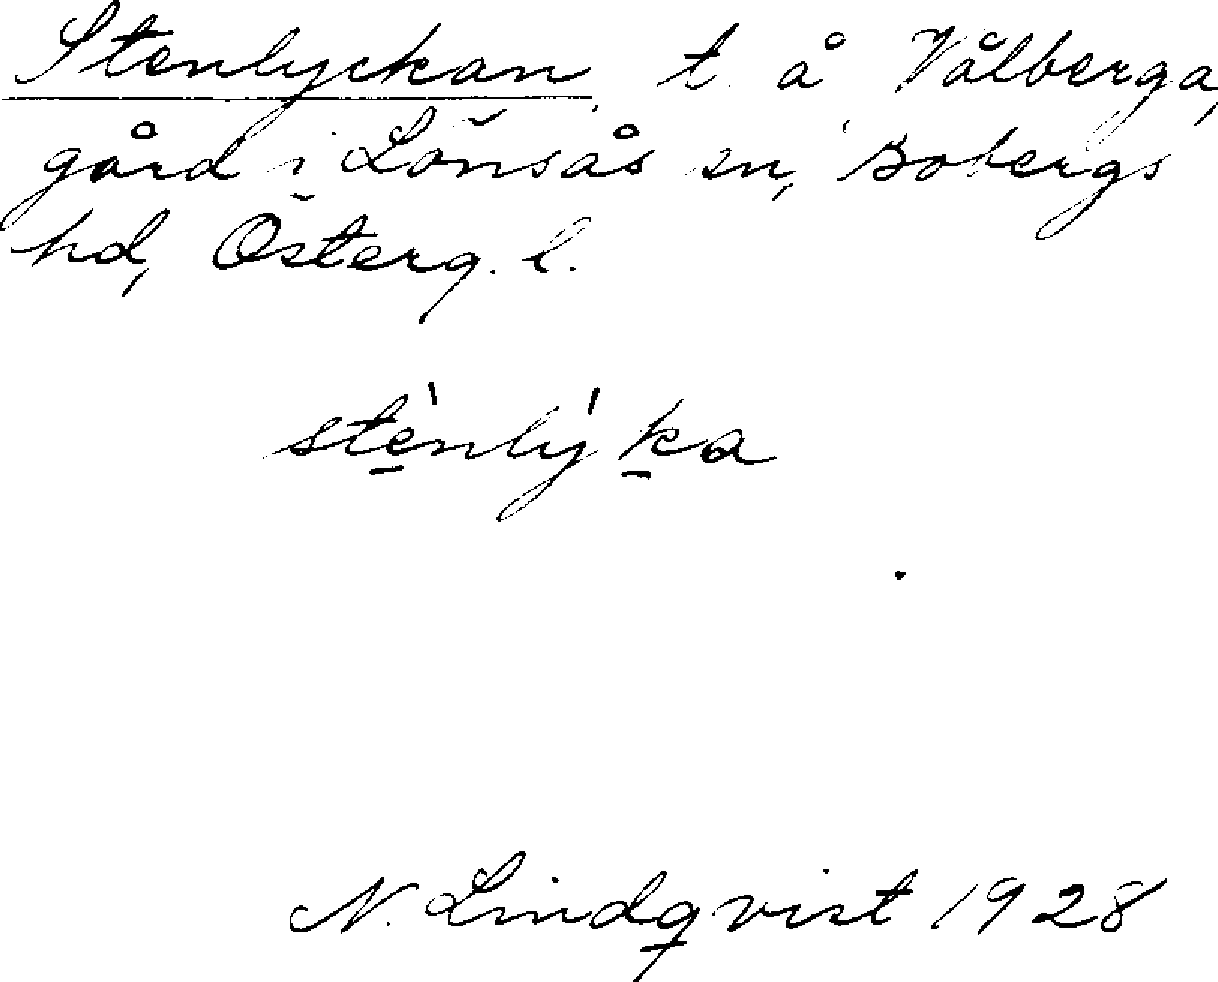 Stenlyckan, t. å Vålberga,
gård i Lönsås sn, Bobergs
hd, Österg. l.
stè̱nlýḵa
N. Lindqvist 1928